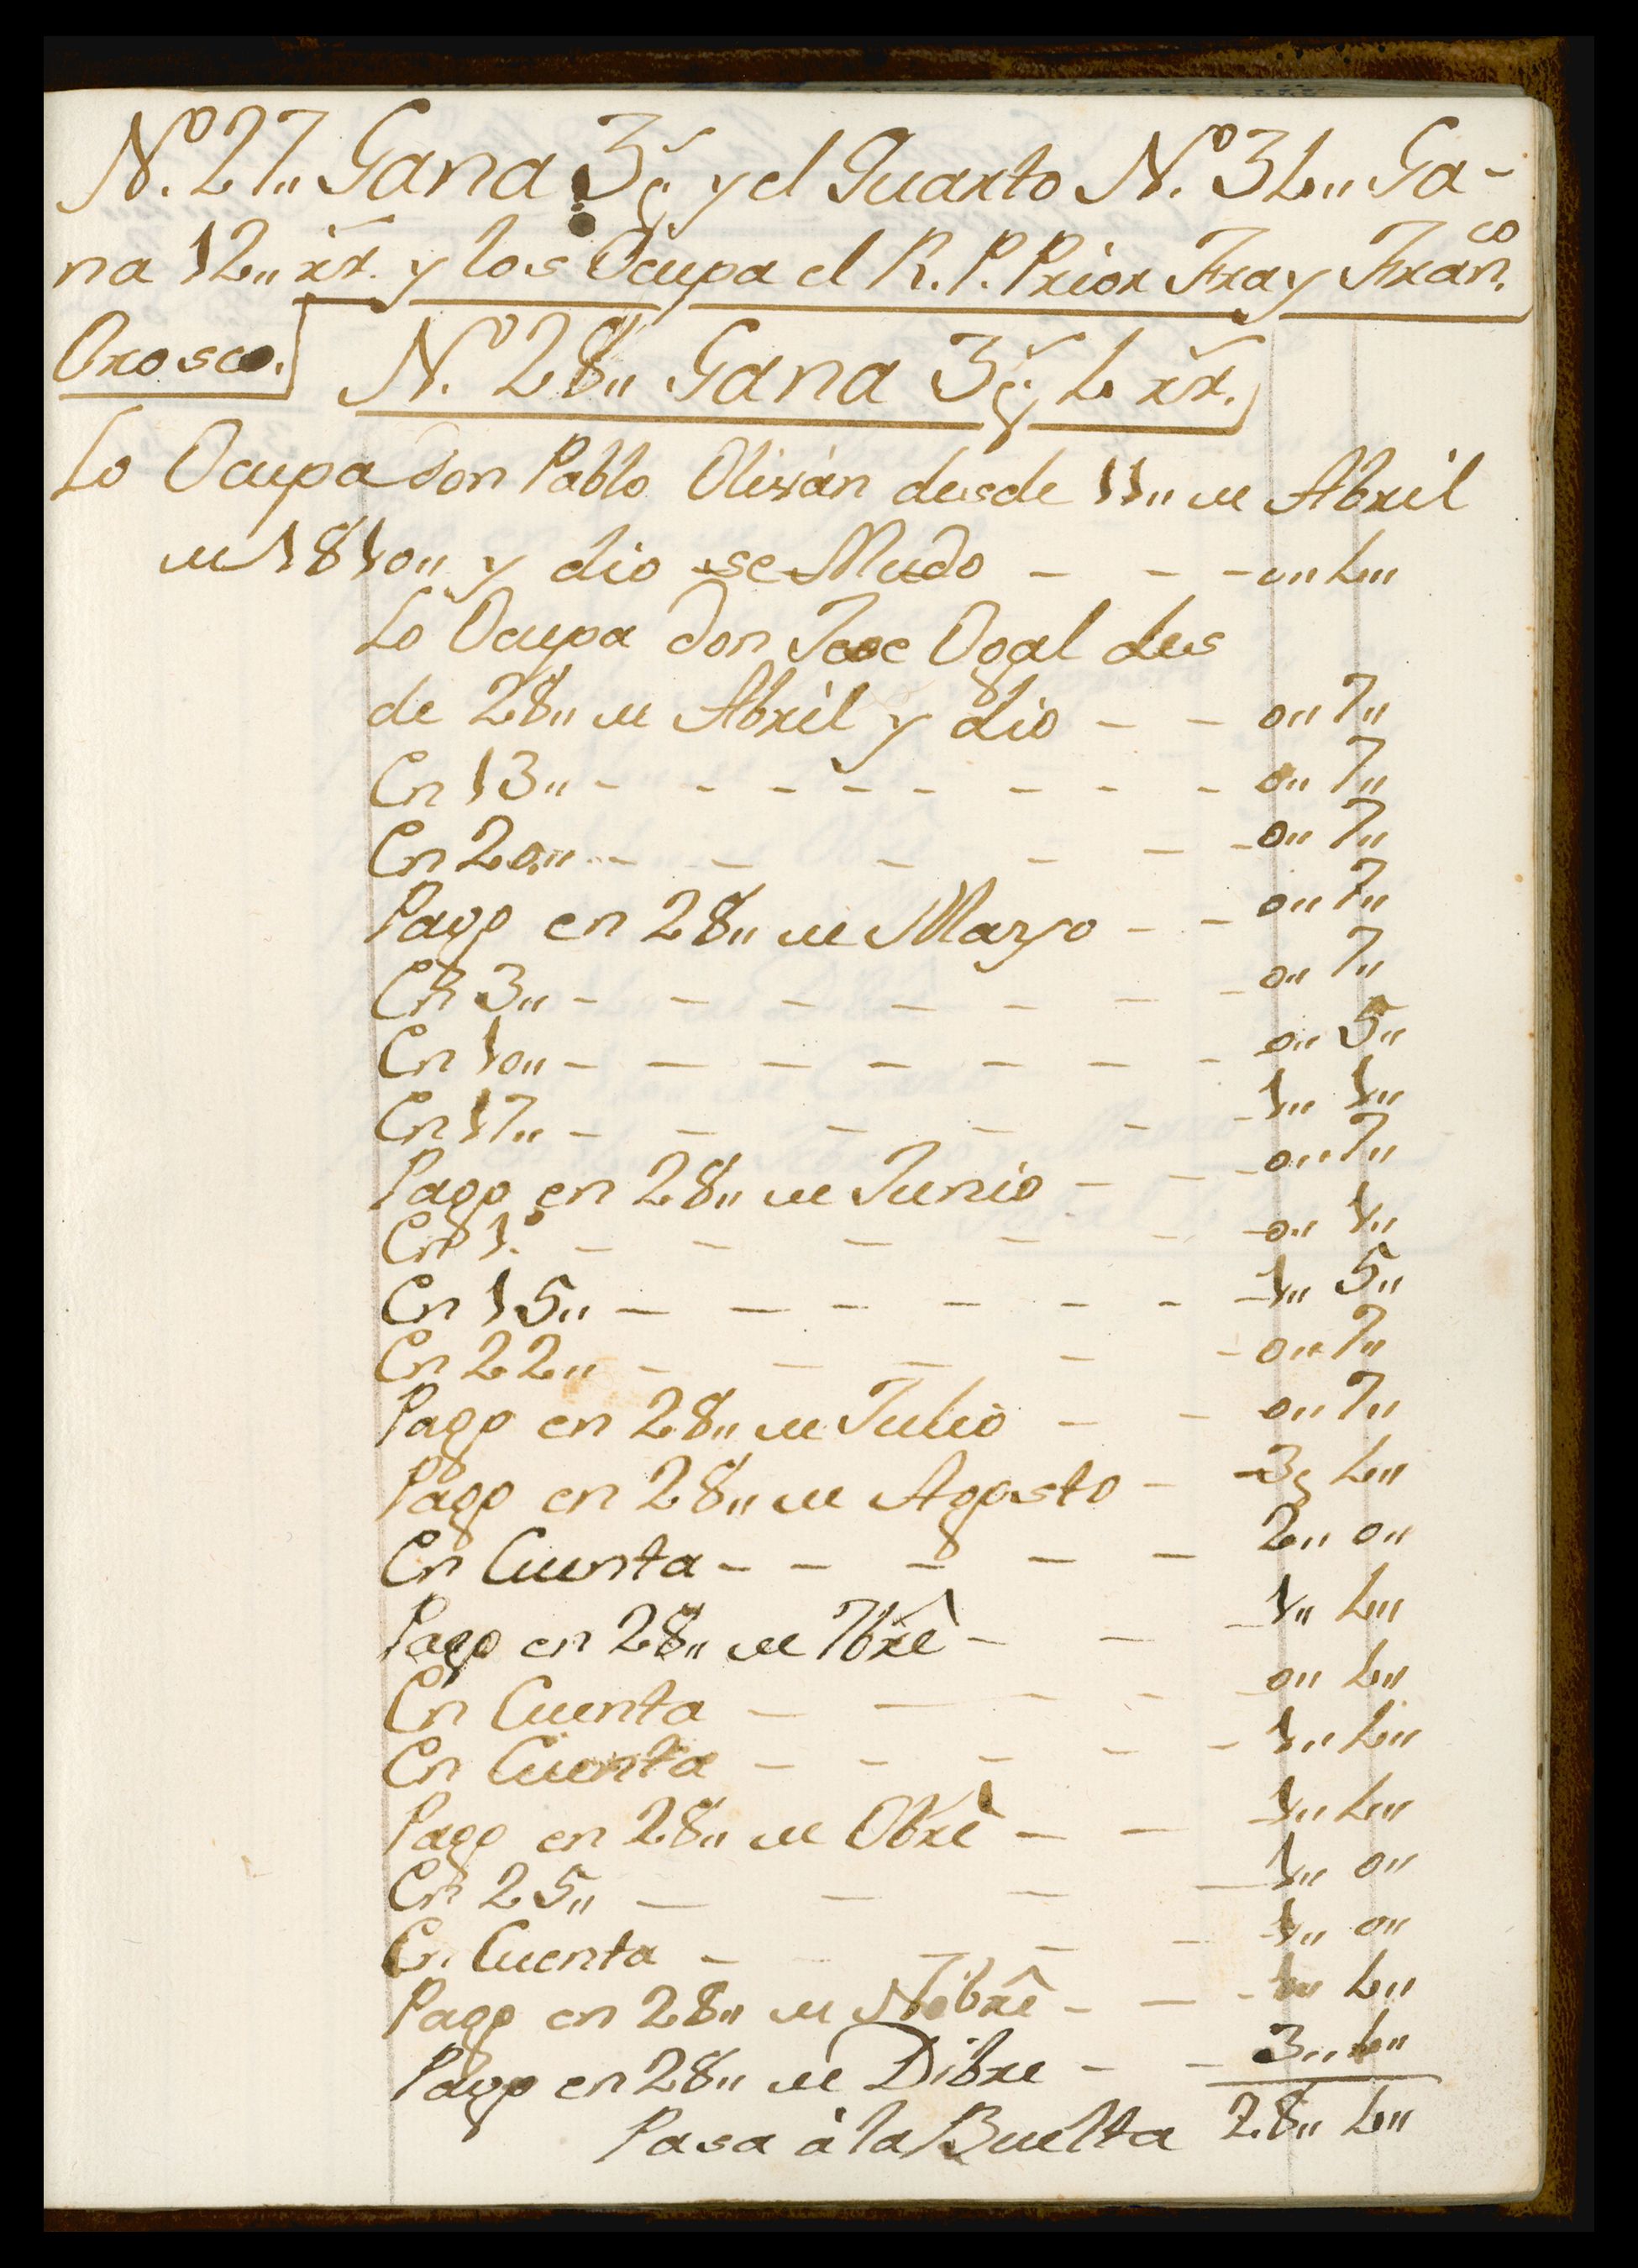 Nº. 27,, Gana 3p̃ y el Quarto Nº. 34,, Ga-
na 12,, rr̃. y los Ocupa el R. P. Prior Fray Franco.
Orosco.
Nº. 28,, Gana 3p̃ 4 rr̃.
Lo Ocupa Don Pablo Olisán desde 11,, de Abril
de 1810,, y dio se Mudo - - - 0,, 4,,
Lo Ocupa Don Jose Ogal des
de 28,, de Abril y dio - - 0,, 7,,
En 13,, - - - - - - - - 0,, 7,,
En 20,, - - - - - - 0,, 7,,
Pago en 28,, de Mayo - - 0,, 7,,
En 3,, - - - - - - - 0,, 7,,
En 10,, - - - - - - - 0,, 5,,
En 17,, - - - - - - 1,, 1,,
Pago en 28,, de Junio - - - 0,, 7,,
En 1º. - - - - - - 0,, 1,,
En 15,, - - - - - - - 1,, 5,,
En 22,, - - - - - 0,, 7,,
Pago en 28,, de Julio - - 0,, 7,,
Pago en 28,, de Agosto - - 3,, 4,,
En Cuenta - - - - - 2,, 0,,
Pago en 28,, de 7brê - - - 1,, 4,,
En Cuenta - - - - - 0,, 4,,
En Cuenta - - - - - 1,, 4,,
Pago en 28,, de Obrê - - - 1,, 4,,
En 25,, - - - - 1,, 0,,
En Cuenta - - - - 1,, 0,,
Pago en 28,, de Nobrê - - - 1,, 4,,
Pago en 28,, de Dibre - - 3,, 4,,
Pasa à la Buelta 28,, 4,,